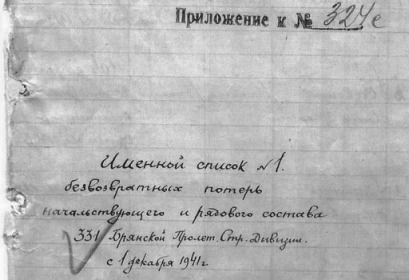 Приложение к № 324с
Именной список №1.
безвозвратных потерь
начальствующего и рядового состава
331 Брянской Пролет. Стр. Дивизии.
с 1 декабря 1941г.